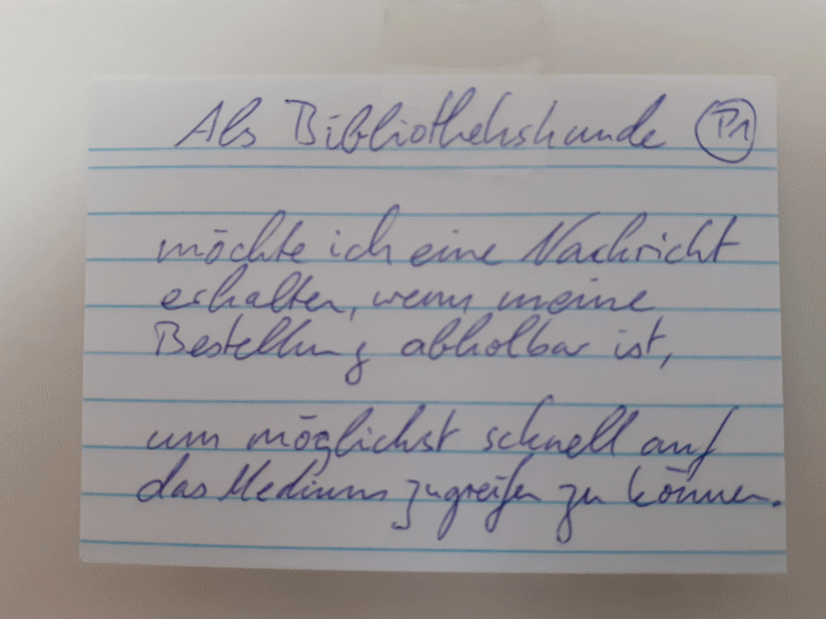 Als Bibliothekskunde P1
möchte ich eine Nachricht
erhalten, wenn meine
Bestellung abholbar ist,
um möglichst schnell auf
das Medium zugreifen zu können.